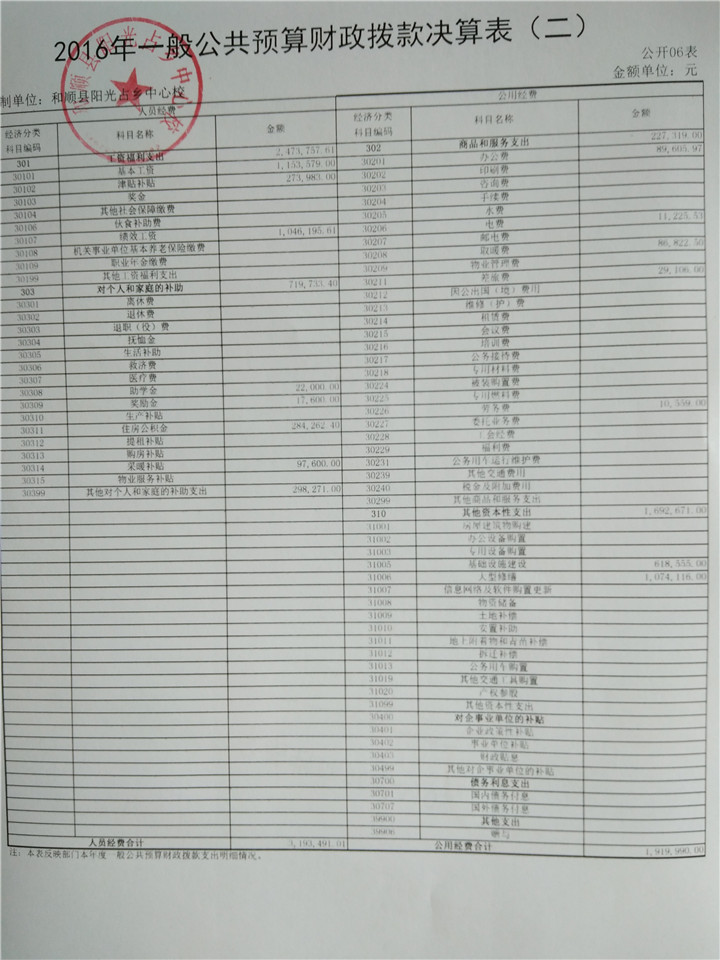 2016年一般公共预算财政拨款决算表（二）
公开06表
制单位：和顺县阳光占乡中心校
金额单位：元
人员经费 公用经费
经济分类科目编码 科目名称 金额 经济分类科目编码 科目名称 金额
301 工资福利支出 2,473,757.61 302 商品和服务支出 227,319.00
30101 基本工资 1,153,579.00 30201 办公费 89,605.97
30102 津贴补贴 273,983.00 30202 印刷费
30103 奖金 30203 咨询费
30104 其他社会保障缴费 30204 手续费
30106 伙食补助费 30205 水费
30107 绩效工资 1,046,195.61 30206 电费 11,225.53
30108 机关事业单位基本养老保险缴费 30207 邮电费
30109 职业年金缴费 30208 取暖费 86,822.50
30199 其他工资福利支出 30209 物业管理费
303 对个人和家庭的补助 719,733.40 30211 差旅费 29,106.00
30301 离休费 30212 因公出国（境）费用
30302 退休费 30213 维修（护）费
30303 退职（役）费 30214 租赁费
30304 抚恤金 30215 会议费
30305 生活补助 30216 培训费
30306 救济费 30217 公务接待费
30307 医疗费 30218 专用材料费
30308 助学金 22,000.00 30224 被装购置费
30309 奖励金 17,600.00 30225 专用燃料费
30310 生产补贴 30226 劳务费 10,559.00
30311 住房公积金 284,262.40 30227 委托业务费
30312 提租补贴 30228 工会经费
30313 购房补贴 30229 福利费
30314 采暖补贴 97,600.00 30231 公务用车运行维护费
30315 物业服务补贴 30239 其他交通费用
30399 其他对个人和家庭的补助支出 298,271.00 30240 税金及附加费用
30299 其他商品和服务支出
310 其他资本性支出 1,692,671.00
31001 房屋建筑物购建
31002 办公设备购置
31003 专用设备购置
31005 基础设施建设 618,555.00
31006 大型修缮 1,074,116.00
31007 信息网络及软件购置更新
31008 物资储备
31009 土地补偿
31010 安置补助
31011 地上附着物和青苗补偿
31012 拆迁补偿
31013 公务用车购置
31019 其他交通工具购置
31020 产权参股
31099 其他资本性支出
30400 对企事业单位的补贴
30401 企业政策性补贴
30402 事业单位补贴
30403 财政贴息
30499 其他对企事业单位的补贴
30700 债务利息支出
30701 国内债务付息
30707 国外债务付息
39900 其他支出
39906 赠与
人员经费合计 3,193,491.01 公用经费合计 1,919,990.00
注：本表反映部门本年度一般公共预算财政拨款支出明细情况。